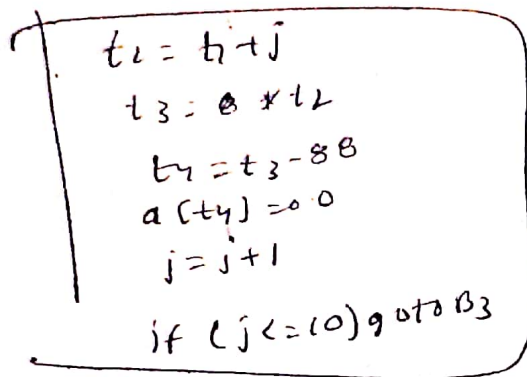 t2 = t1 + j
t3 = 8 * t2
t4 = t3 - 88
a [t4] = 0.0
j = j + 1
if (j <= 10) goto B3